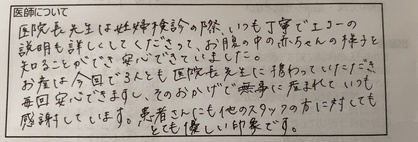 医師について
医院長先生は妊婦検診の際、いつも丁寧でエコーの
説明も詳しくしてくださって、お腹の中の赤ちゃんの様子を
知ることができ安心できていました。
お産は今回で3人とも医院長先生に携わっていただき
毎回安心できますし、そのおかげで無事に産まれていつも
感謝しています。患者さんにも他のスタッフの方に対しても
とても優しい印象です。